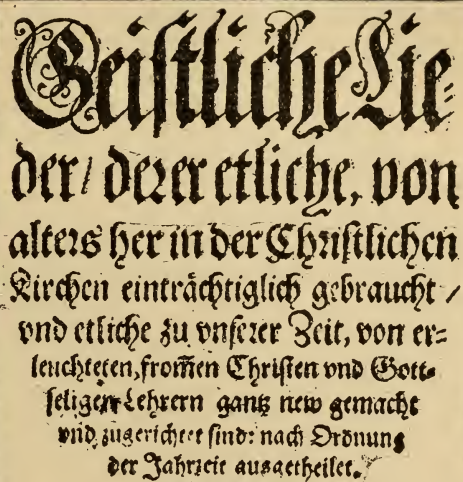 Geistliche Lie-
der/ derer etliche, von
alters her in der Christlichen
Kirchen einträchtiglich gebraucht/
vnd etliche zu vnserer Zeit, von er=
leuchteten, from̃en Christen vnd Gott-
seligen Lehrern gantz new gemacht
vnd zugerichtet sind: nach Ordnung
der Jahrzeit ausgetheilet.